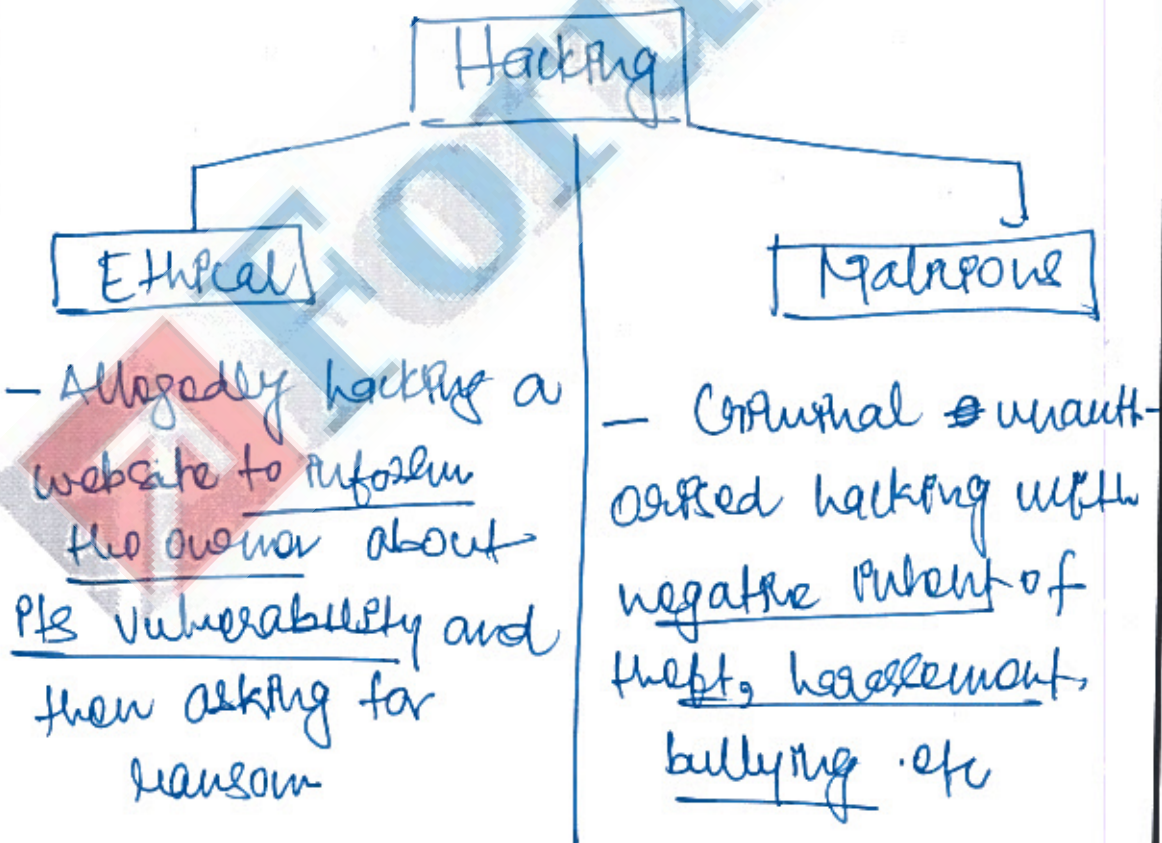 Hacking
Ethical
Malicious
- Allegedly hacking a
website to inform
the owner about
its vulnerability and
then asking for
ransom
- Criminal unauth-
orised hacking with
negative intent of
theft, harassement,
bullying .etc